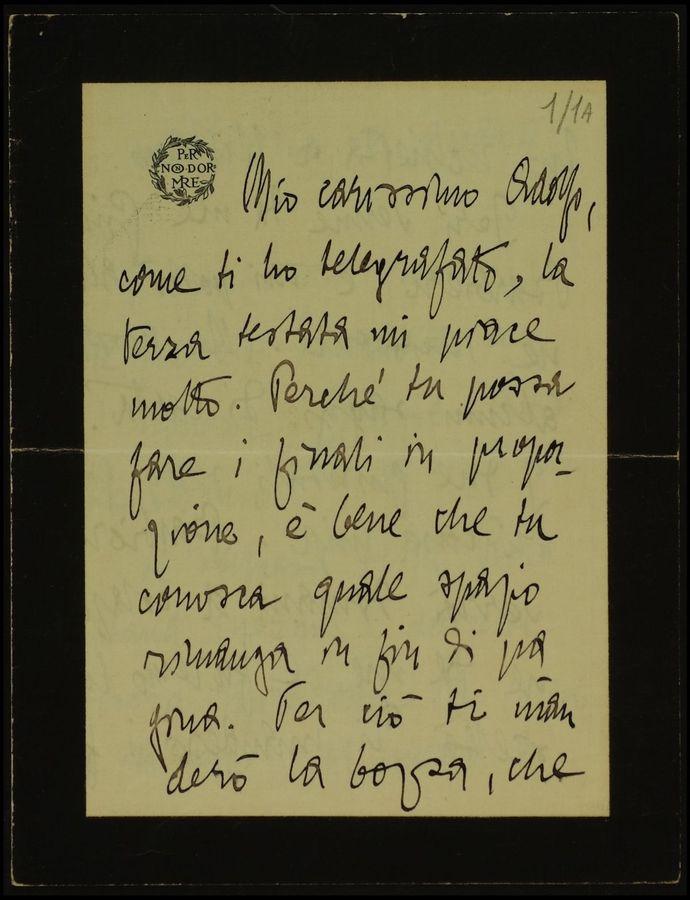 1/1A
PER
NON DOR
MIRE
Mio carissimo Adolfo,
come ti ho telegrafato, la
terza testata mi piace
molto. Perché tu possa
fare i finali in propor-
zione, è bene che tu
conosca quale spazio
rimanga in fin di pa
gina. Per ciò ti man
derò la bozza, che